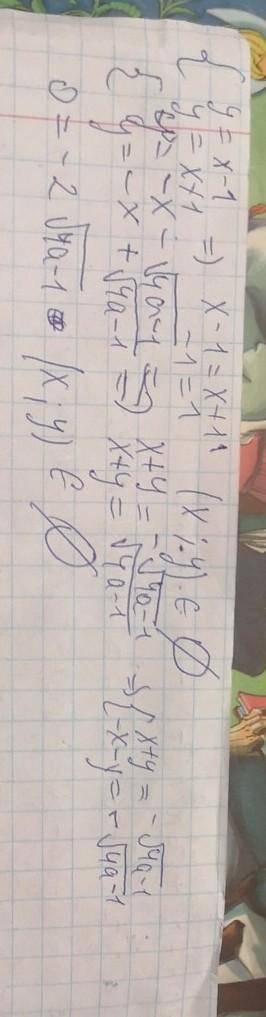 { y = x-1
y = x+1 => x-1 = x+1 (x; y) ∈ ∅
-1 = 1
{ y = -x - √4a-1 => x+y = -√4a-1 => { x+y = -√4a-1
y = -x + √4a-1 => x+y = √4a-1 -x-y = -√4a-1
0 = -2√4a-1 (x; y) ∈ ∅